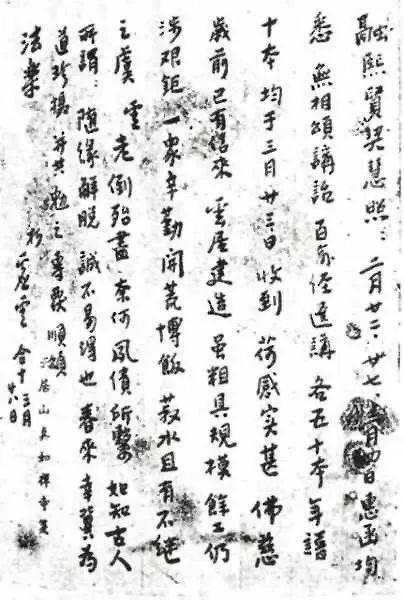 融熙賢契慧照：二月廿二、廿七、三月四日惠函均
悉　無相頌講話　百丈 經進講　各五十本　年譜
十本　均于三月廿三日收到　荷感實甚　佛慈
歲前已有信來　雲居建造　虽粗具規模　餘工仍
涉艰鉅　一眾辛勤　開荒博飯　菽水且有不继
之虞　雲老倒殆盡　奈何夙债所繫　始知古人
所謂　隨缘解脱　誠不易得也　春來幸冀為
道珍攝　并共勉之　專覆　順頌
法樂　衲虛雲合十　三月廿八日
雲居山真如禪寺箋